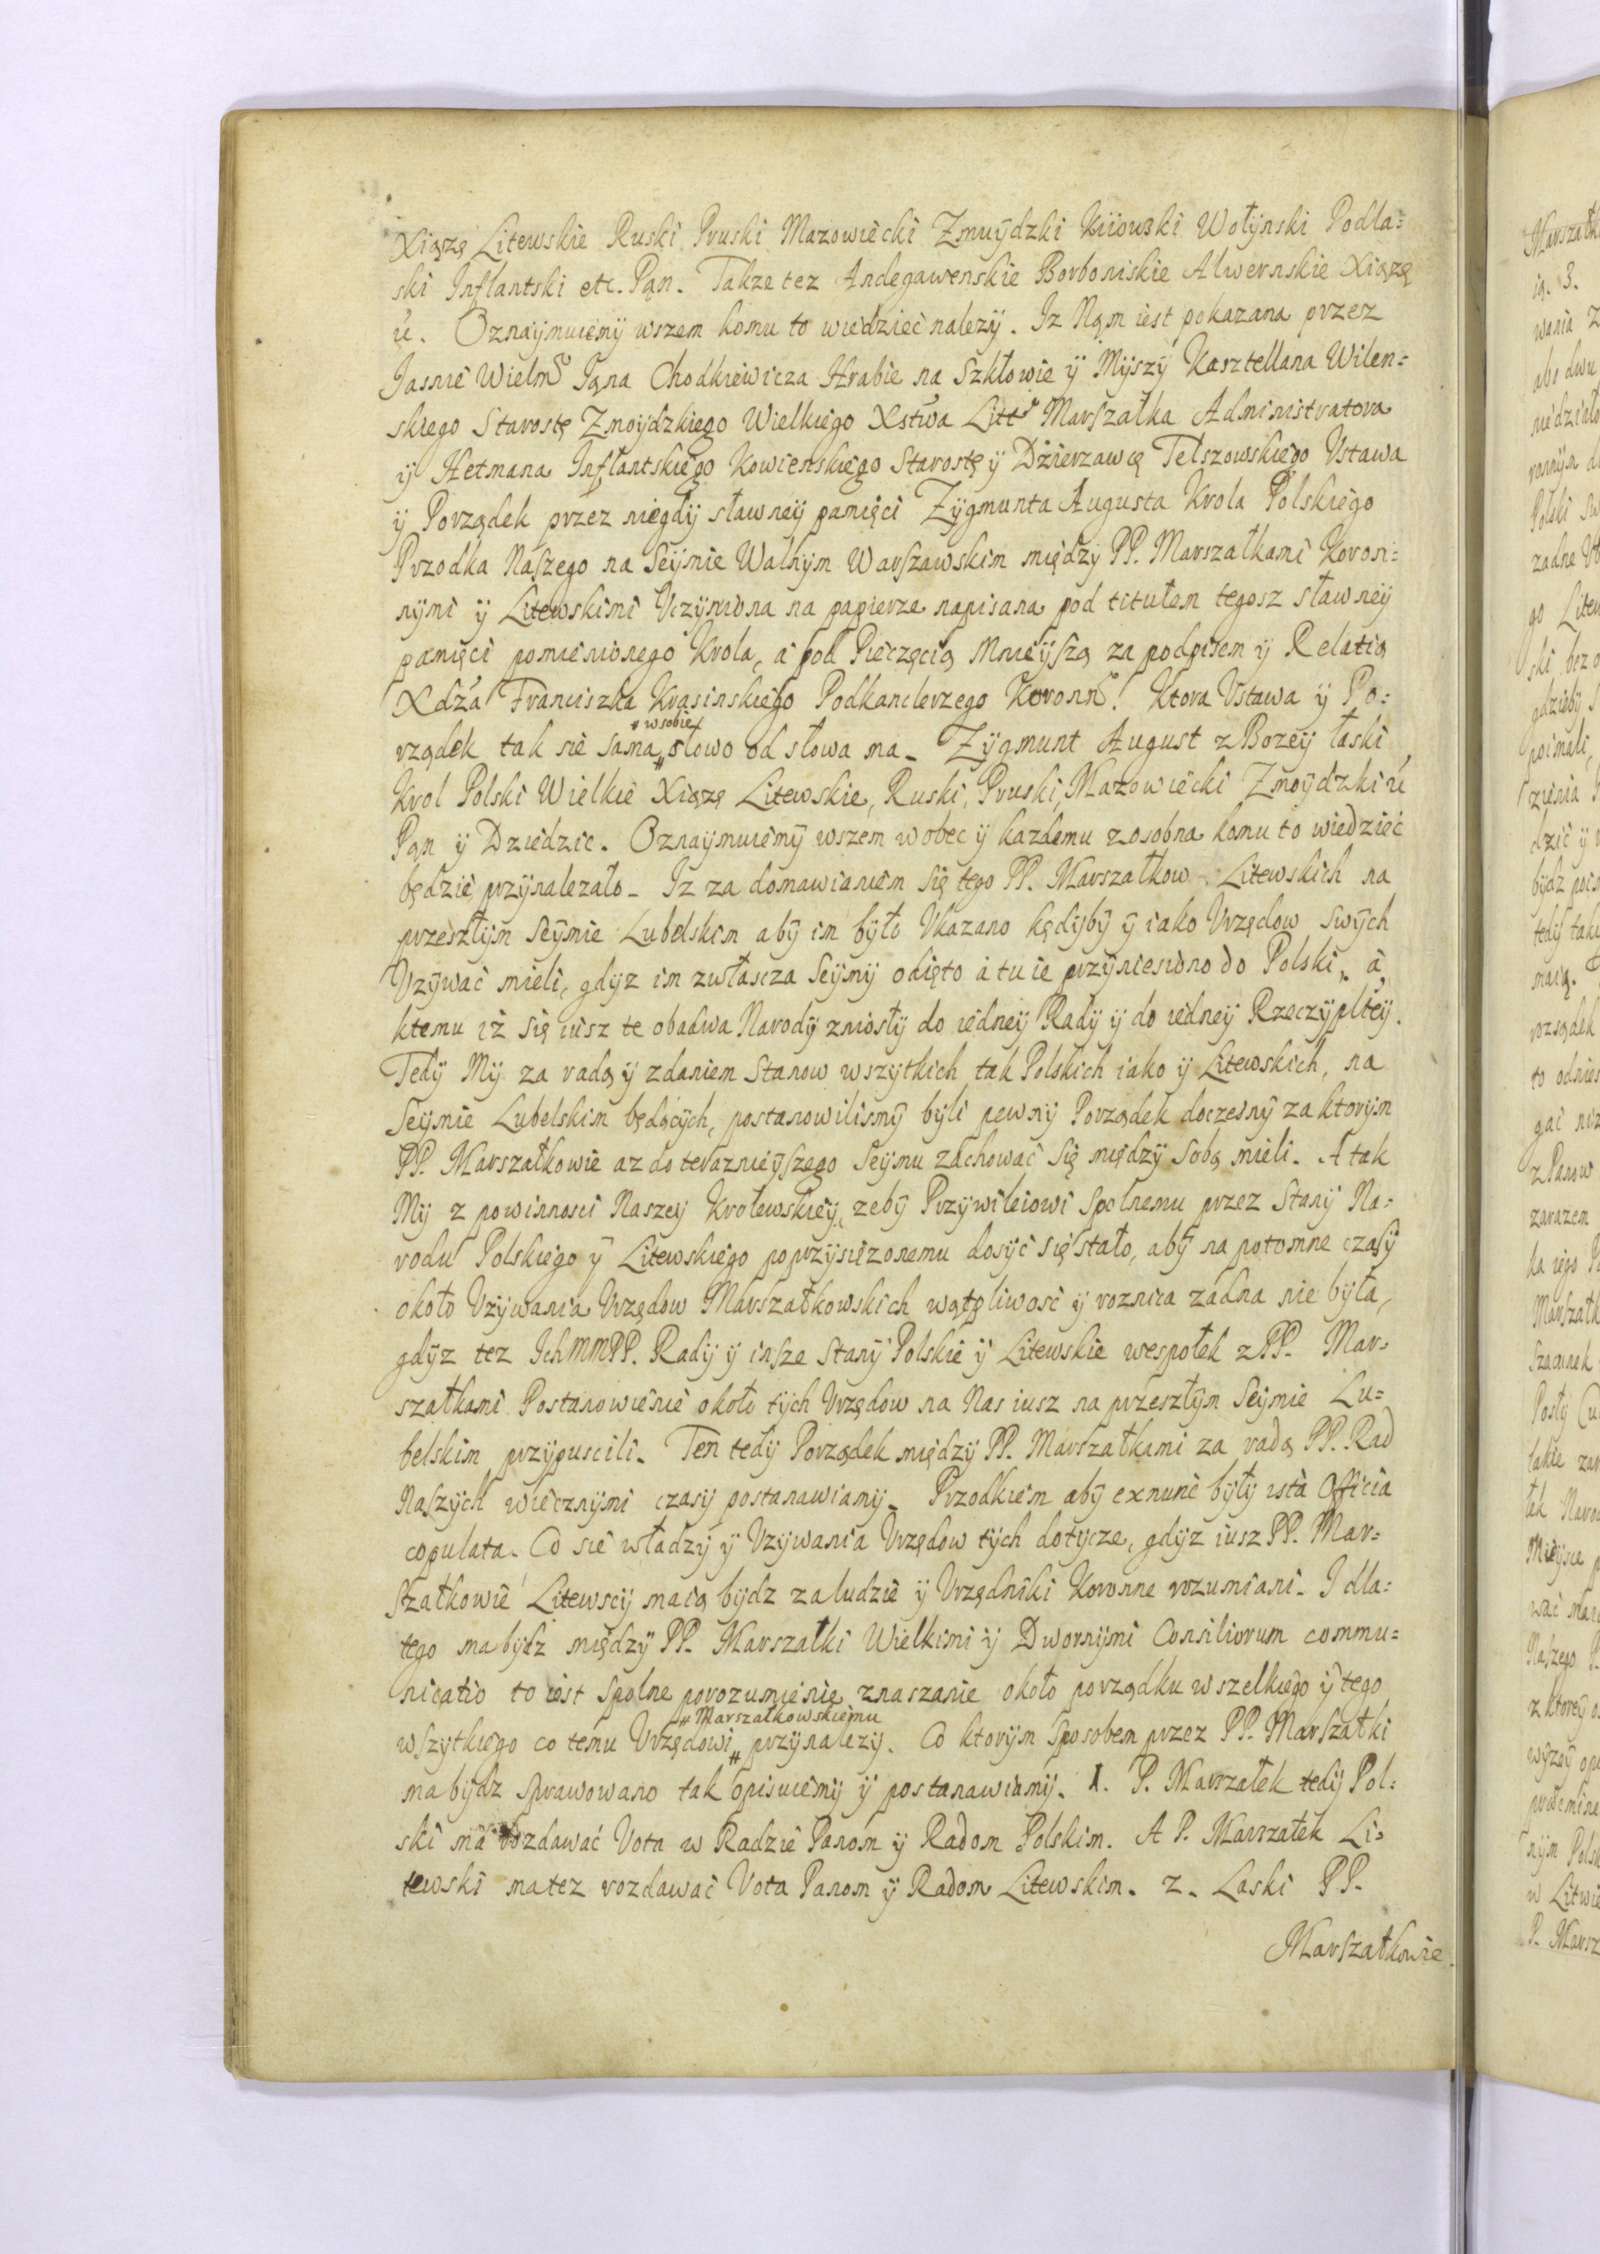 Xiązę Litewskie Ruski Pruski Mazowiecki Zmuÿdzki Kiiowski Wołÿnski Podla:
ski Inflantski etc. Pąn. Takze tez Andegawenskie Borboniskie Alwernskie Xiązę
Oznaÿmuiemÿ wszem komu to wiedziec nalezÿ. Iz Nąm iest pokazana przez
Jasnie Wielm⁰ Jąna Chodkiewicza Hrabie na Szkłowie ÿ Mÿszÿ Kasztellana Wilen:
skiego Starostę Zmoÿdzkiego Wielkiego Xstwa Litt⁰ Marszałka Administratora
ÿ Hetmana Inflantskiego Kowienskiego Starostę ÿ Dzierzawcę Telszowskiego Ustawa
ÿ Porządek przez niegdÿ sławneÿ pamięci Zÿgmunta Augusta Krola Polskiego
Przodka Naszego na Seÿmie Walnÿm Warszawskim międzÿ PP. Marszałkami Koron:
nÿmi ÿ Litewskimi Uczÿniona na papierze napisana pod titułem tegosz sławneÿ
pamięci pomienionego Krola, a pod Pieczęcią Mnieÿszą za podpisem ÿ Relatią
Xdza Franciszka Krasinskiego Podkanclerzego Koronn⁰. Ktora Ustawa ÿ Po:
# w sobie
rządek tak sie sama # słowo od słowa ma. Zÿgmunt August z Bozeÿ łaski
Krol Polski Wielkie Xiązę Litewskie, Ruski, Pruski, Mazowiecki Zmoÿdzki
Pąn ÿ Dziedzic. Oznaÿmuiemÿ wszem wobec ÿ kazdemu zosobna komu to wiedzieć
będzie przÿnalezało. Iz za domawianiem się tego PP. Marszałkow Litewskich na
przeszłÿm Seÿmie Lubelskim abÿ im bÿło Ukazano kędÿbÿ ÿ iako Urzędow swÿch
Uzÿwać mieli, gdÿz im zwłascza Seÿmÿ odięto a tu ie przÿniesiono do Polski, a
ktemu iż się iusz te obadwa Narodÿ zniosłÿ do iedneÿ Radÿ ÿ do iedneÿ Rzeczÿpltey.
Tedÿ Mÿ za radą ÿ zdaniem Stanow wszytkich tak Polskich iako ÿ Litewskich, na
Seÿmie Lubelskim będącÿch, postanowilismÿ bÿli pewnÿ Porządek doczesnÿ za ktorÿm
PP. Marszałkowie az do teraznieÿszego Seÿmu zachować się międzÿ sobą mieli. A tak
Mÿ z powinnosci Naszeÿ Krolewskieÿ, zebÿ Przÿwileiowi Spolnemu przez Stanÿ Na:
rodu Polskiego ÿ Litewskiego poprzÿsiezonemu dosÿc się stało, abÿ na potomne czasÿ
około Uzÿwania Urzędow Marszałkowskich wątpliwosc ÿ roznica zadna nie bÿła,
gdÿz tez Ich MM PP. Radÿ ÿ insze Stanÿ Polskie ÿ Litewskie wespołek z PP. Mar:
szałkami Postanowienie około tÿch Urzędow na Nas iusz na przeszłÿm Seÿmie Lu:
belskim przÿpuscili. Ten tedÿ Porządek międzÿ PP. Marszałkami za radą PP. Rad
Naszÿch wiecznÿmi czasÿ postanawiamÿ. Przodkiem abÿ exnunc bÿłÿ ista Officia
copulata. Co sie władzÿ ÿ Uzÿwania Urzędow tÿch dotÿcze, gdÿz iusz PP. Mar:
szałkowie Litewscÿ maią bÿdz za ludzie ÿ Urzędniki Koronne rozumiani. I dla:
tego ma bÿdz międzÿ PP. Marszałki Wielkimi ÿ Dwornÿmi Consiliorum commu:
nicatio to iest Spolne porozumienie znaszanie około porządku wszelkiego ÿ tego
# Marszałkowskiemu
wszytkiego co temu Urzędowi # przÿnalezÿ. Co ktorÿm Sposobem przez PP. Marszałki
ma bÿdz sprawowano tak opisuiemÿ ÿ postanawiamÿ. 1. P. Marszałek tedÿ Pol:
ski ma rozdawać Vota w Radzie Panom ÿ Radom Polskim. A P. Marszałek Li:
tewski ma tez rozdawać Vota Panom ÿ Radom Litewskim. 2. Laski PP.
Marszałkowie